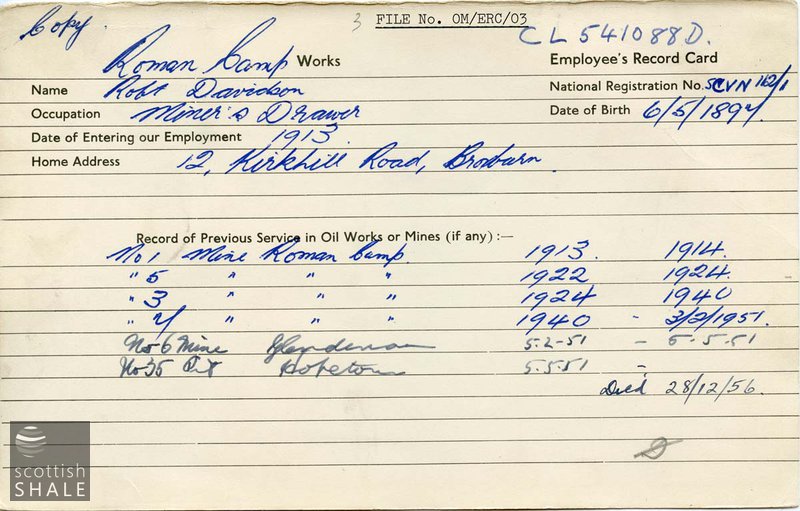 Copy.
3 FILE No. OM/ERC/03
CL 541088D.
Roman Camp Works Employee's Record Card
Name Robt Davidson National Registration No. SCVN 162/1
Occupation Miner's Drawer Date of Birth 6/5/1897.
Date of Entering our Employment 1913.
Home Address 12, Kirkhill Road, Broxburn.
Record of Previous Service in Oil Works or Mines (if any) :—
No 1 Mine Roman Camp. 1913. 1914.
" 5 " " " 1922 1924.
" 3 " " " 1924 1940
" 7 " " " 1940 - 3/2/1951.
No 6 Mine Glendevon 5-2-51 - 5.5.51
No 35 Pit Hopetoun 5.5.51 -
Died 28/12/56.
D
scottish
SHALE